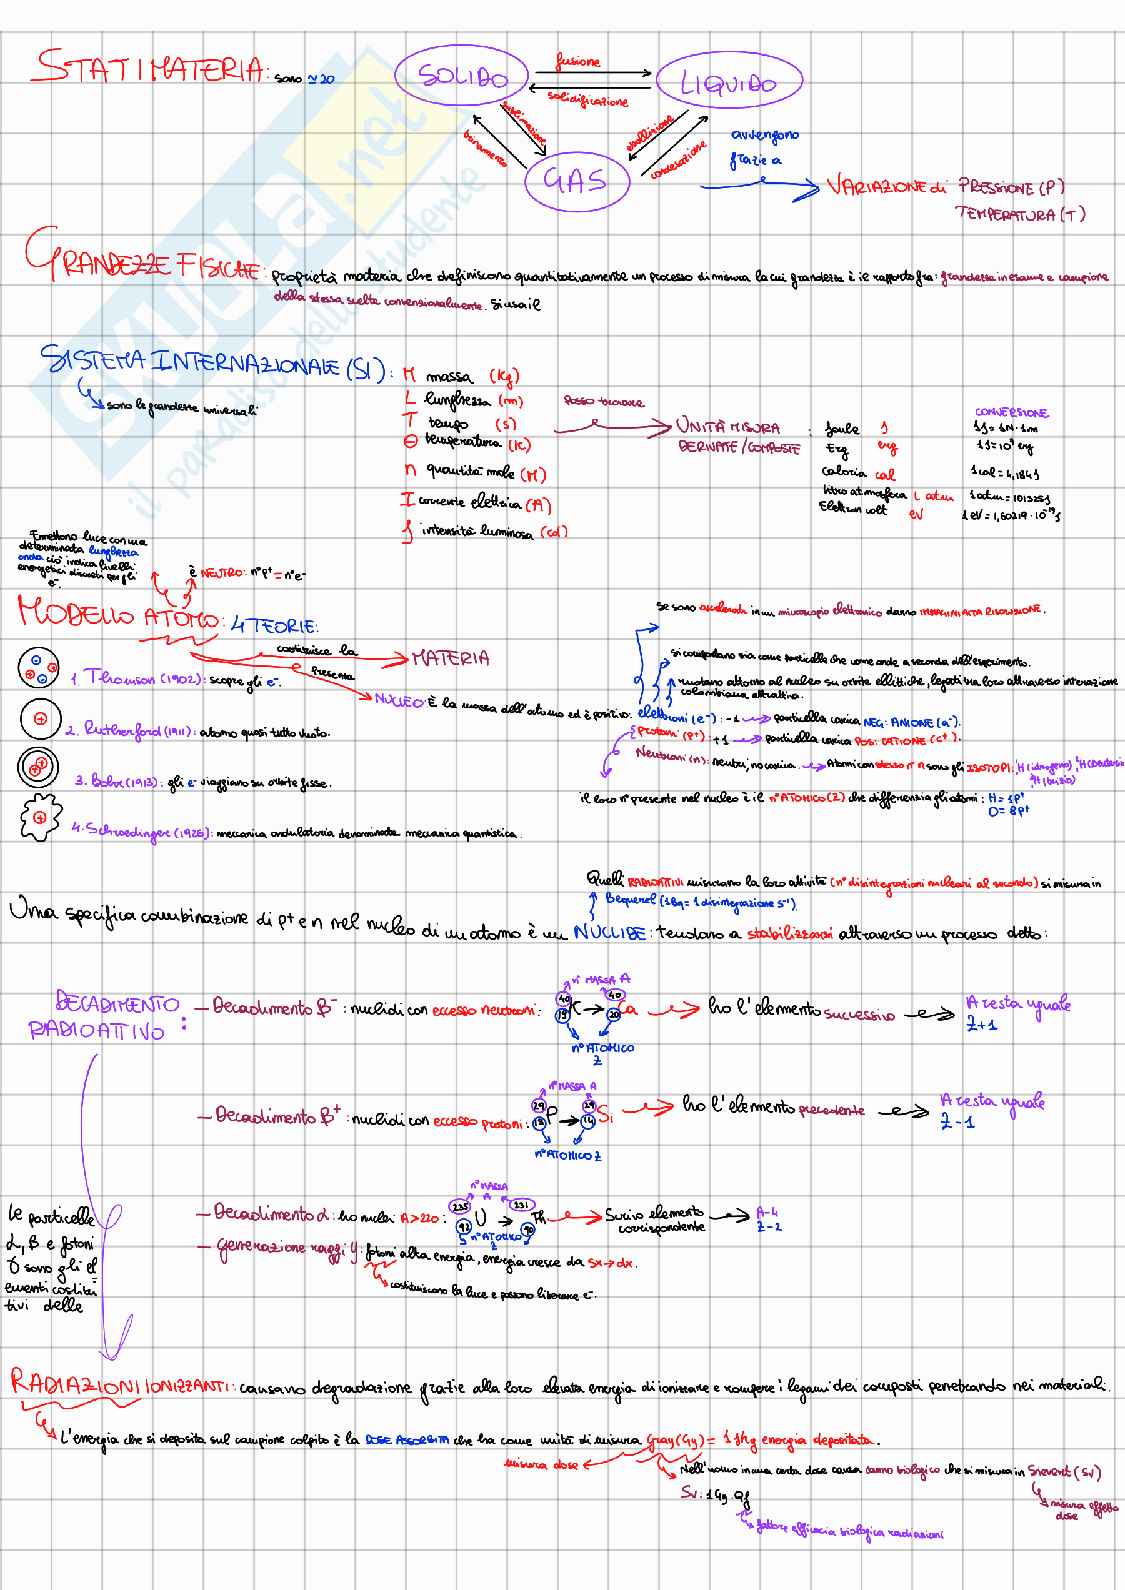 STATI MATERIA: sono ≃ 20
SOLIDO
fusione
LIQUIDO
solidificazione
sublimazione
brinamento
ebollizione
condensazione
GAS
avvengono
grazie a
VARIAZIONE di PRESSIONE (P)
TEMPERATURA (T)
GRANDEZZE FISICHE: proprietà materia che definiscono quantitativamente un processo di misura la cui grandezza è il rapporto fra: grandezza in esame e campione
della stessa scelta convenzionalmente. Si usa il
SISTEMA INTERNAZIONALE (SI):
sono le grandezze universali
M massa (Kg)
L lunghezza (m)
T tempo (s)
Θ temperatura (K)
n quantità mole (M)
I corrente elettrica (A)
J intensità luminosa (cd)
Posso trovare
UNITÀ MISURA
DERIVATE / COMPOSTE
CONVERSIONE
: Joule J 1J = 1N · 1m
Erg erg 1J = 10⁷ erg
Caloria cal 1cal = 4,184J
litro atmosfera L atm 1atm = 101325J
Elektron volt eV 1eV = 1,60219 · 10⁻¹⁹J
Emettono luce con una
determinata lunghezza
onda ciò indica livelli
energetici discreti per gli
e⁻
è NEUTRO: n°p⁺ = n°e⁻
MODELLO ATOMO: 4 TEORIE:
costituisce la
MATERIA
presenta
NUCLEO: È la massa dell'atomo ed è positivo.
1. Thomson (1902): scopre gli e⁻.
2. Rutherford (1911): atomo quasi tutto vuoto.
3. Bohr (1913): gli e⁻ viaggiano su orbite fisse.
4. Schroedinger (1926): meccanica ondulatoria denominata meccanica quantistica.
Se sono accelerati in un microscopio elettronico danno IMMAGINI ALTA RISOLUZIONE.
Si comportano sia come particelle che come onde a seconda dell'esperimento.
ruotano attorno al nucleo su orbite ellittiche, legati tra loro attraverso interazione
colombiana attrattiva.
elettroni (e⁻): -1 → particella carica NEG: ANIONE (a⁻).
protoni (p⁺): +1 → particella carica POS: CATIONE (c⁺).
Neutroni (n): neutri, no carica → Atomi con stesso n° n sono gli ISOTOPI: ¹H (idrogeno), ²H (Deuterio)
³H (trizio)
il loro n° presente nel nucleo è il n° ATOMICO (Z) che differenzia gli atomi: H = 1p⁺
O = 8p⁺
Quelli RADIOATTIVI misurano la loro attività (n° disintegrazioni nucleari al secondo) si misura in
Bequerel (1Bq = 1 disintegrazione s⁻¹)
Una specifica combinazione di p⁺ e n nel nucleo di un atomo è un NUCLIDE: tendono a stabilizzarsi attraverso un processo detto:
DECADIMENTO
RADIOATTIVO :
n° MASSA A
— Decadimento B⁻: nuclidi con eccesso neutroni: 40 19 K → 40 20 Ca → ho l'elemento successivo → A resta uguale
Z+1
n° ATOMICO
Z
n° MASSA A
— Decadimento B⁺: nuclidi con eccesso protoni: 29 P → 29 14 Si → ho l'elemento precedente → A resta uguale
Z-1
n° ATOMICO Z
n° MASSA
A
— Decadimento α: ho nuclei A > 220: 235 92 U → 231 90 Th → Scrivo elemento
corrispondente → A-4
Z-2
n° ATOMICO
Z
— Generazione raggi γ: fotoni alta energia, energia cresce da sx → dx.
costituiscono la luce e possono liberare e⁻.
Le particelle
α, B e fotoni
γ sono gli el
ementi costitu
tivi delle
RADIAZIONI IONIZZANTI: causano degradazione grazie alla loro elevata energia di ionizzare e rompere i legami dei composti penetrando nei materiali.
L'energia che si deposita sul campione colpito è la DOSE ASSORBITA che ha come unità di misura Gray (Gy) = 1J/kg energia depositata.
misura dose
Nell'uomo in una certa dose causa danno biologico che si misura in Sievert (Sv)
Sv: 1Gy · Qf
misura effetto
dose
fattore efficacia biologica radiazioni
SKUOLA.net
il paradiso dello studente